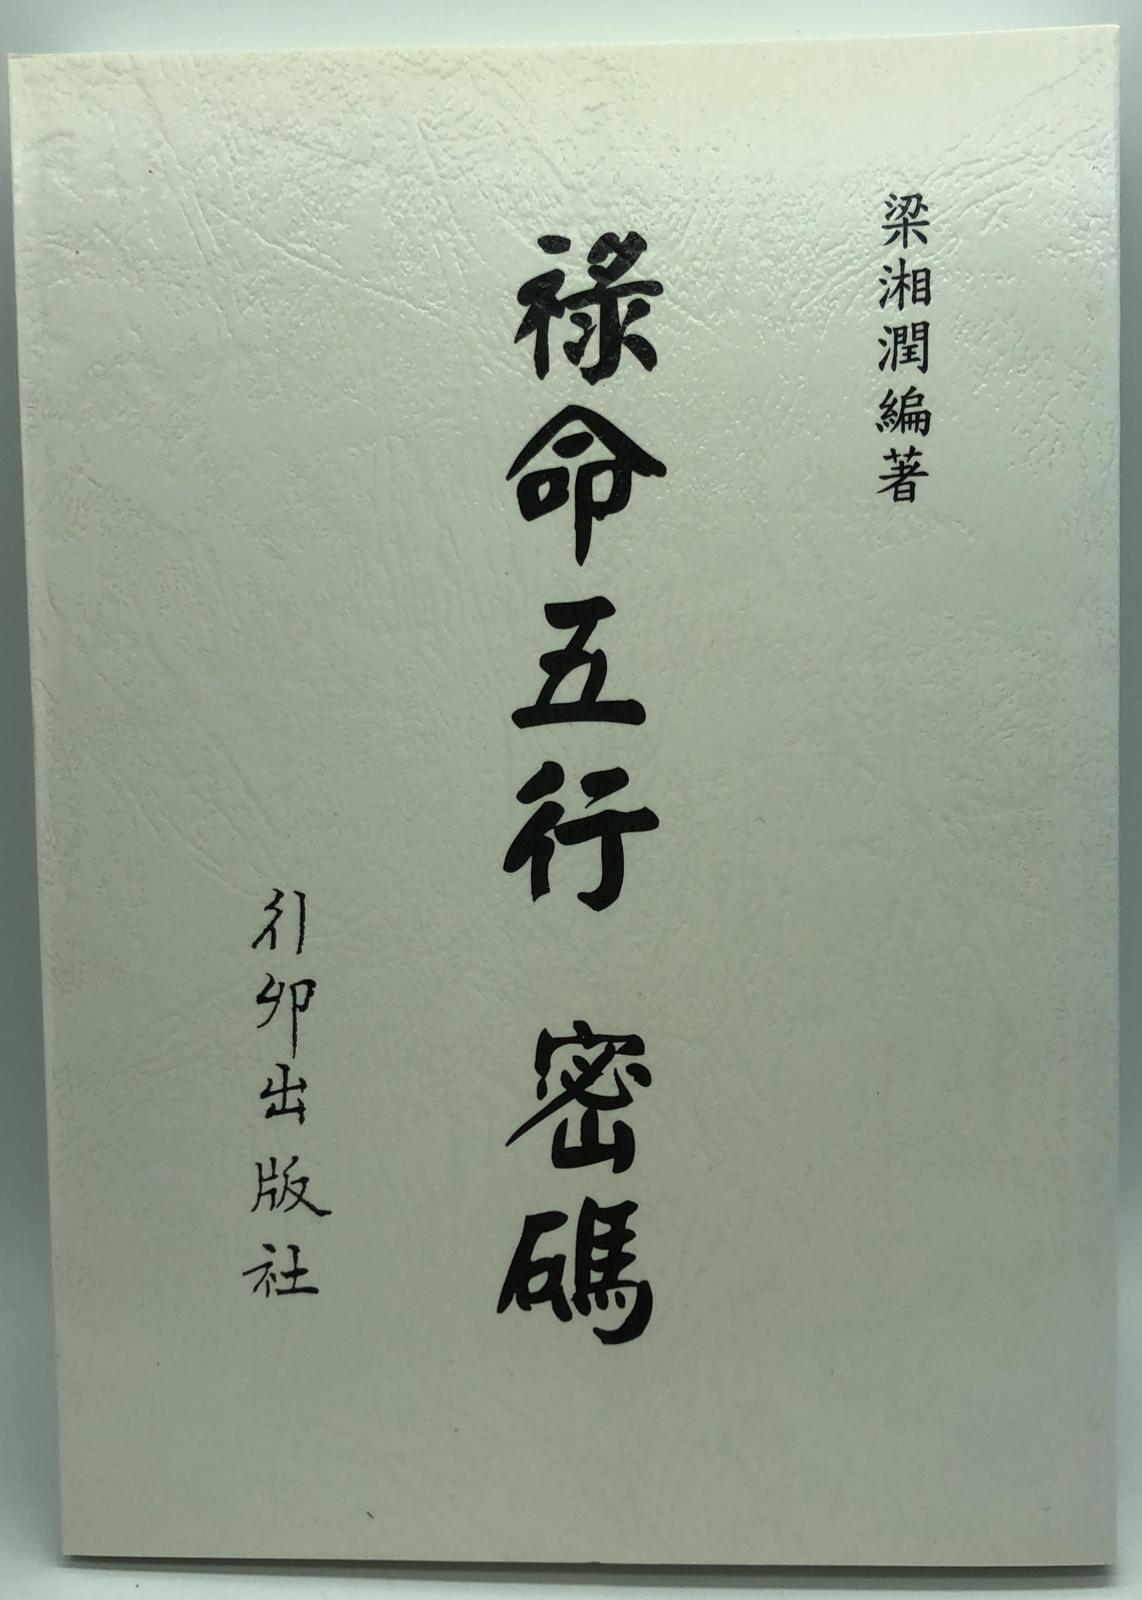 梁湘潤編著
祿命五行 密碼
行卯出版社